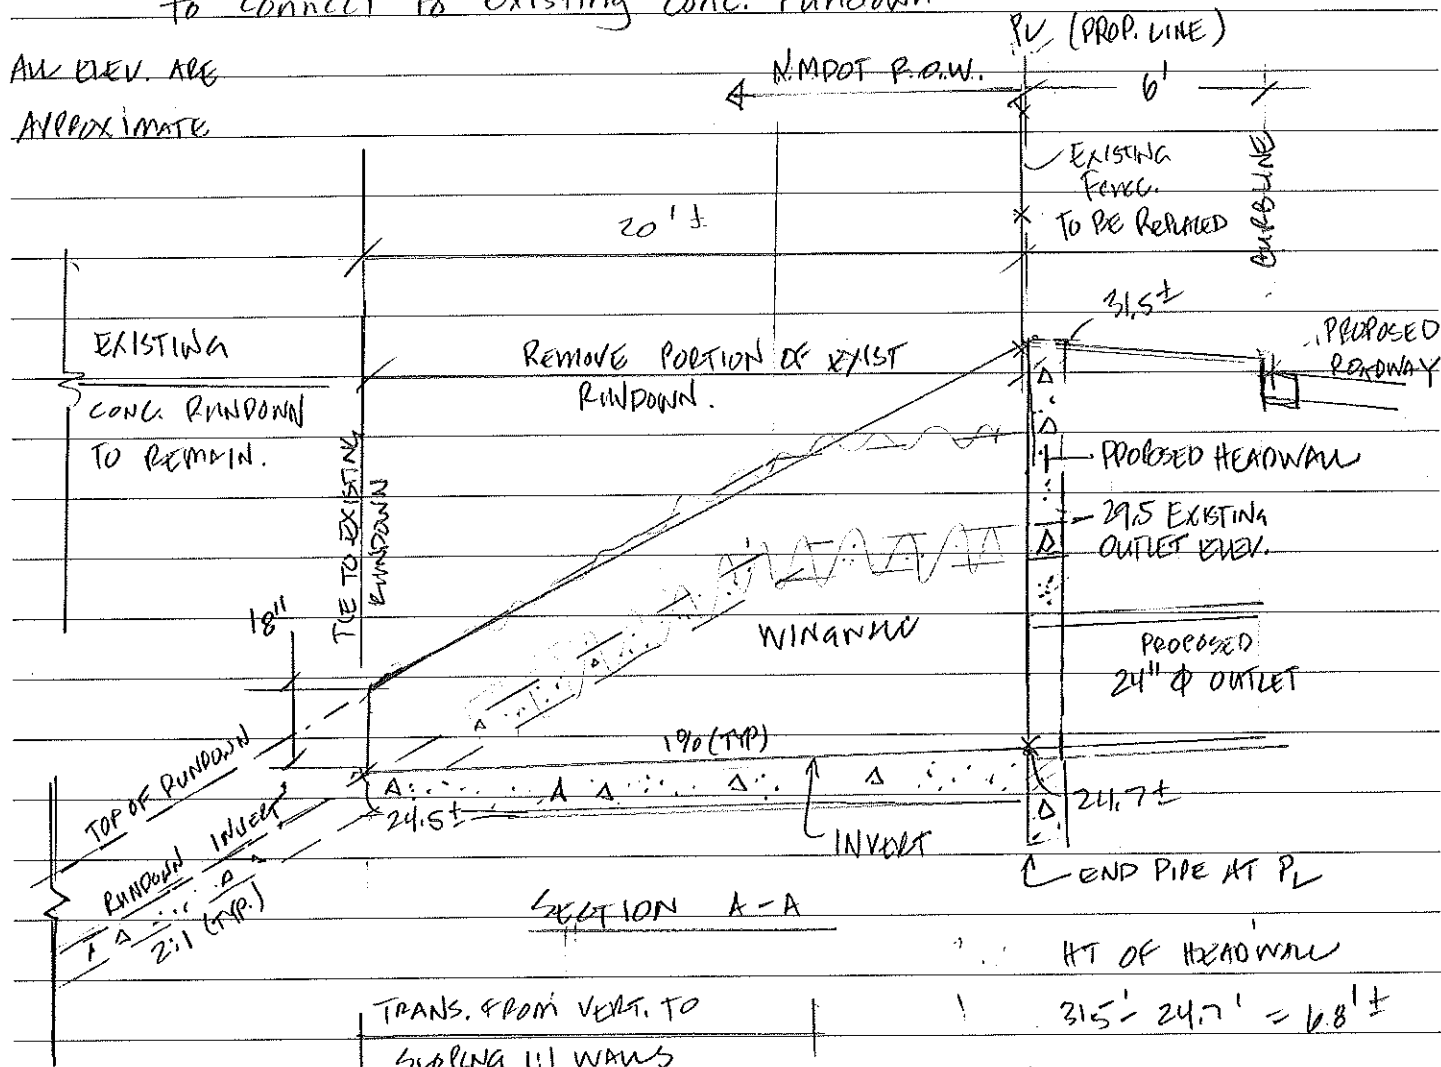 To connect to existing conc. rundown
ALL ELEV. ARE
APPROXIMATE
PL (PROP. LINE)
NMDOT R.O.W.
6'
EXISTING
FENCE.
TO BE REPLACED
CURBLINE
20'±
31.5±
PROPOSED
ROADWAY
EXISTING
CONC. RUNDOWN
TO REMAIN.
REMOVE PORTION OF EXIST
RUNDOWN.
TIE TO EXISTING
RUNDOWN
PROPOSED HEADWALL
29.5 EXISTING
OUTLET ELEV.
18"
WINGWALL
PROPOSED
24" Φ OUTLET
1% (TYP)
TOP OF RUNDOWN
RUNDOWN INVERT
2:1 (TYP.)
24.5±
24.7±
INVERT
END PIPE AT PL
SECTION A-A
HT OF HEADWALL
31.5' - 24.7' = 6.8'±
TRANS. FROM VERT. TO
SLOPING 1:1 WALLS